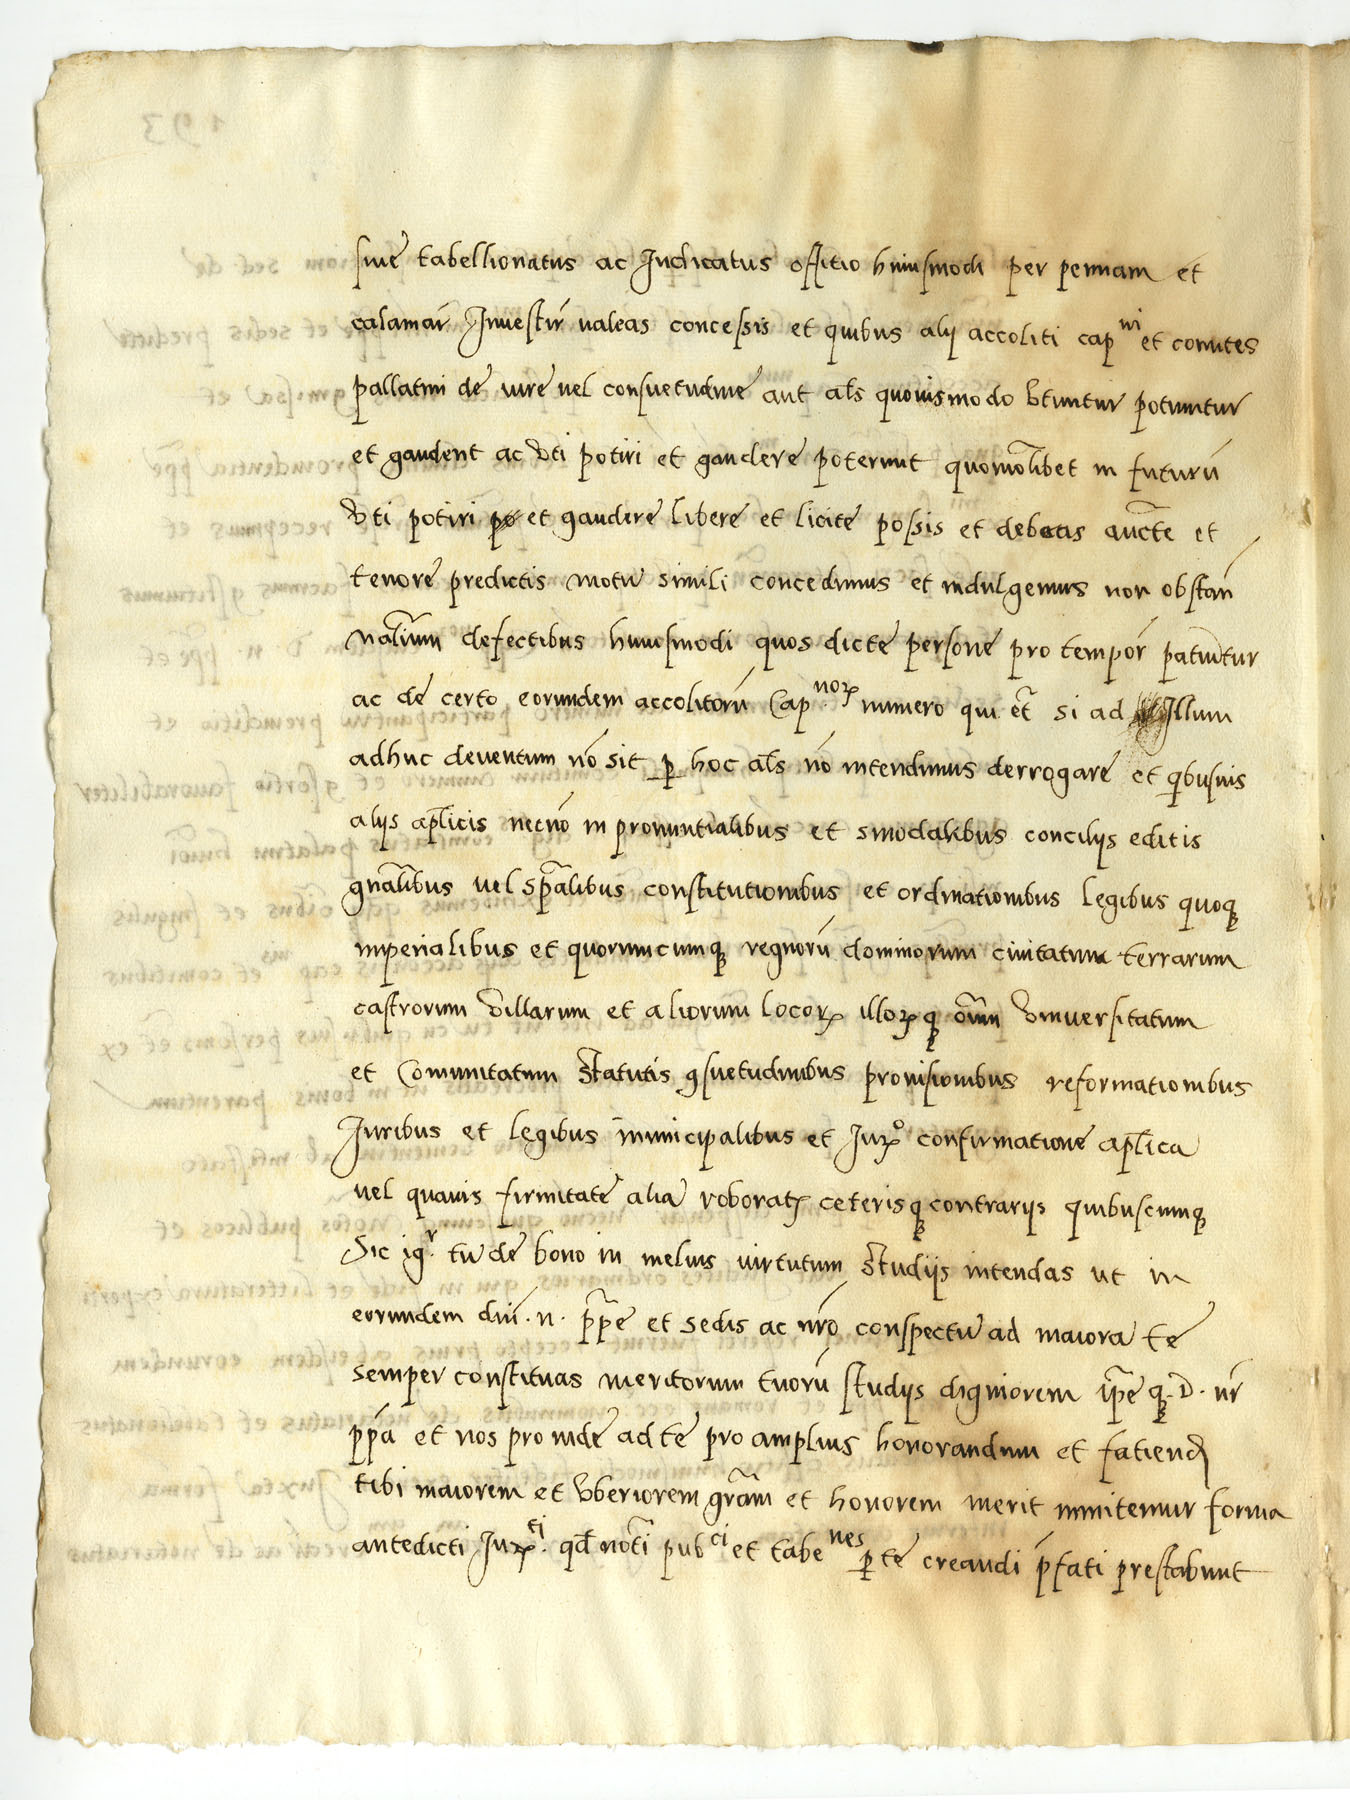 siue tabellionatus ac Iudicatus offitio huiusmodi per pennam et
calamar̃ Inuestir̃ ualeas concessis et quibus alij accoliti cap^ni et comites
pallatini de iure uel consuetudine aut al̃s quouismodo vtuntur potiuntur
et gaudent ac vti potiri et gaudere poterunt quomõlibet in futurũ
vti potiri et gaudere libere et licite possis et debeas auc̃te et
tenore predictis motu simili concedimus et indulgemus non obstañ
nal̃ium defectibus huiusmodi quos dicte persone pro tempor̃ patiũtur
ac de certo eorundem accolitorũ Cap.^noꝝ numero qui et̃ si ad Illum
adhuc deuentum nõ sit ꝑ hoc al̃s nõ intendimus derrogare et qĩbusuis
alijs apl̃icis necnõ in prouuntialibus et sinodalibus concilijs editis
gñalibus uel sp̃alibus constitutionibus et ordinationibus legibus quoqꝫ
imperialibus et quorumcumqꝫ regnorũ dominorum ciuitatum terrarum
castrorum villarum et aliorum locoꝝ illoꝝqꝫ om̃iu vniuersitatum
et Comunitatum statutis ꝯsuetudinibus prouisionibus reformationibus
Iuribus et legibus municipalibus et Iurꝰ confirmatione apl̃ica
uel quauis firmitate alia roboratꝭ ceterisqꝫ contrarijs quibuscumqꝫ
Sic ig^r. tu de bono in melius uirtutum studijs intendas ut in
eorundem dñi. n. p̃pe et sedis ac nr̃o conspectu ad maiora te
semper constituas meritorum tuorũ studijs digniorem ip̃e qꝫ. D. nr̃
pp̃a et nos proinde ad te pro amplius honorandum et fatiendꝭ
tibi maiorem et vberiorem gr̃am et honorem merit inuitemur forma
antedicti Iur.^ti qd̃ not̃i pub^ci et tabe^nes ꝑ te creandi p̃fati prestabunt